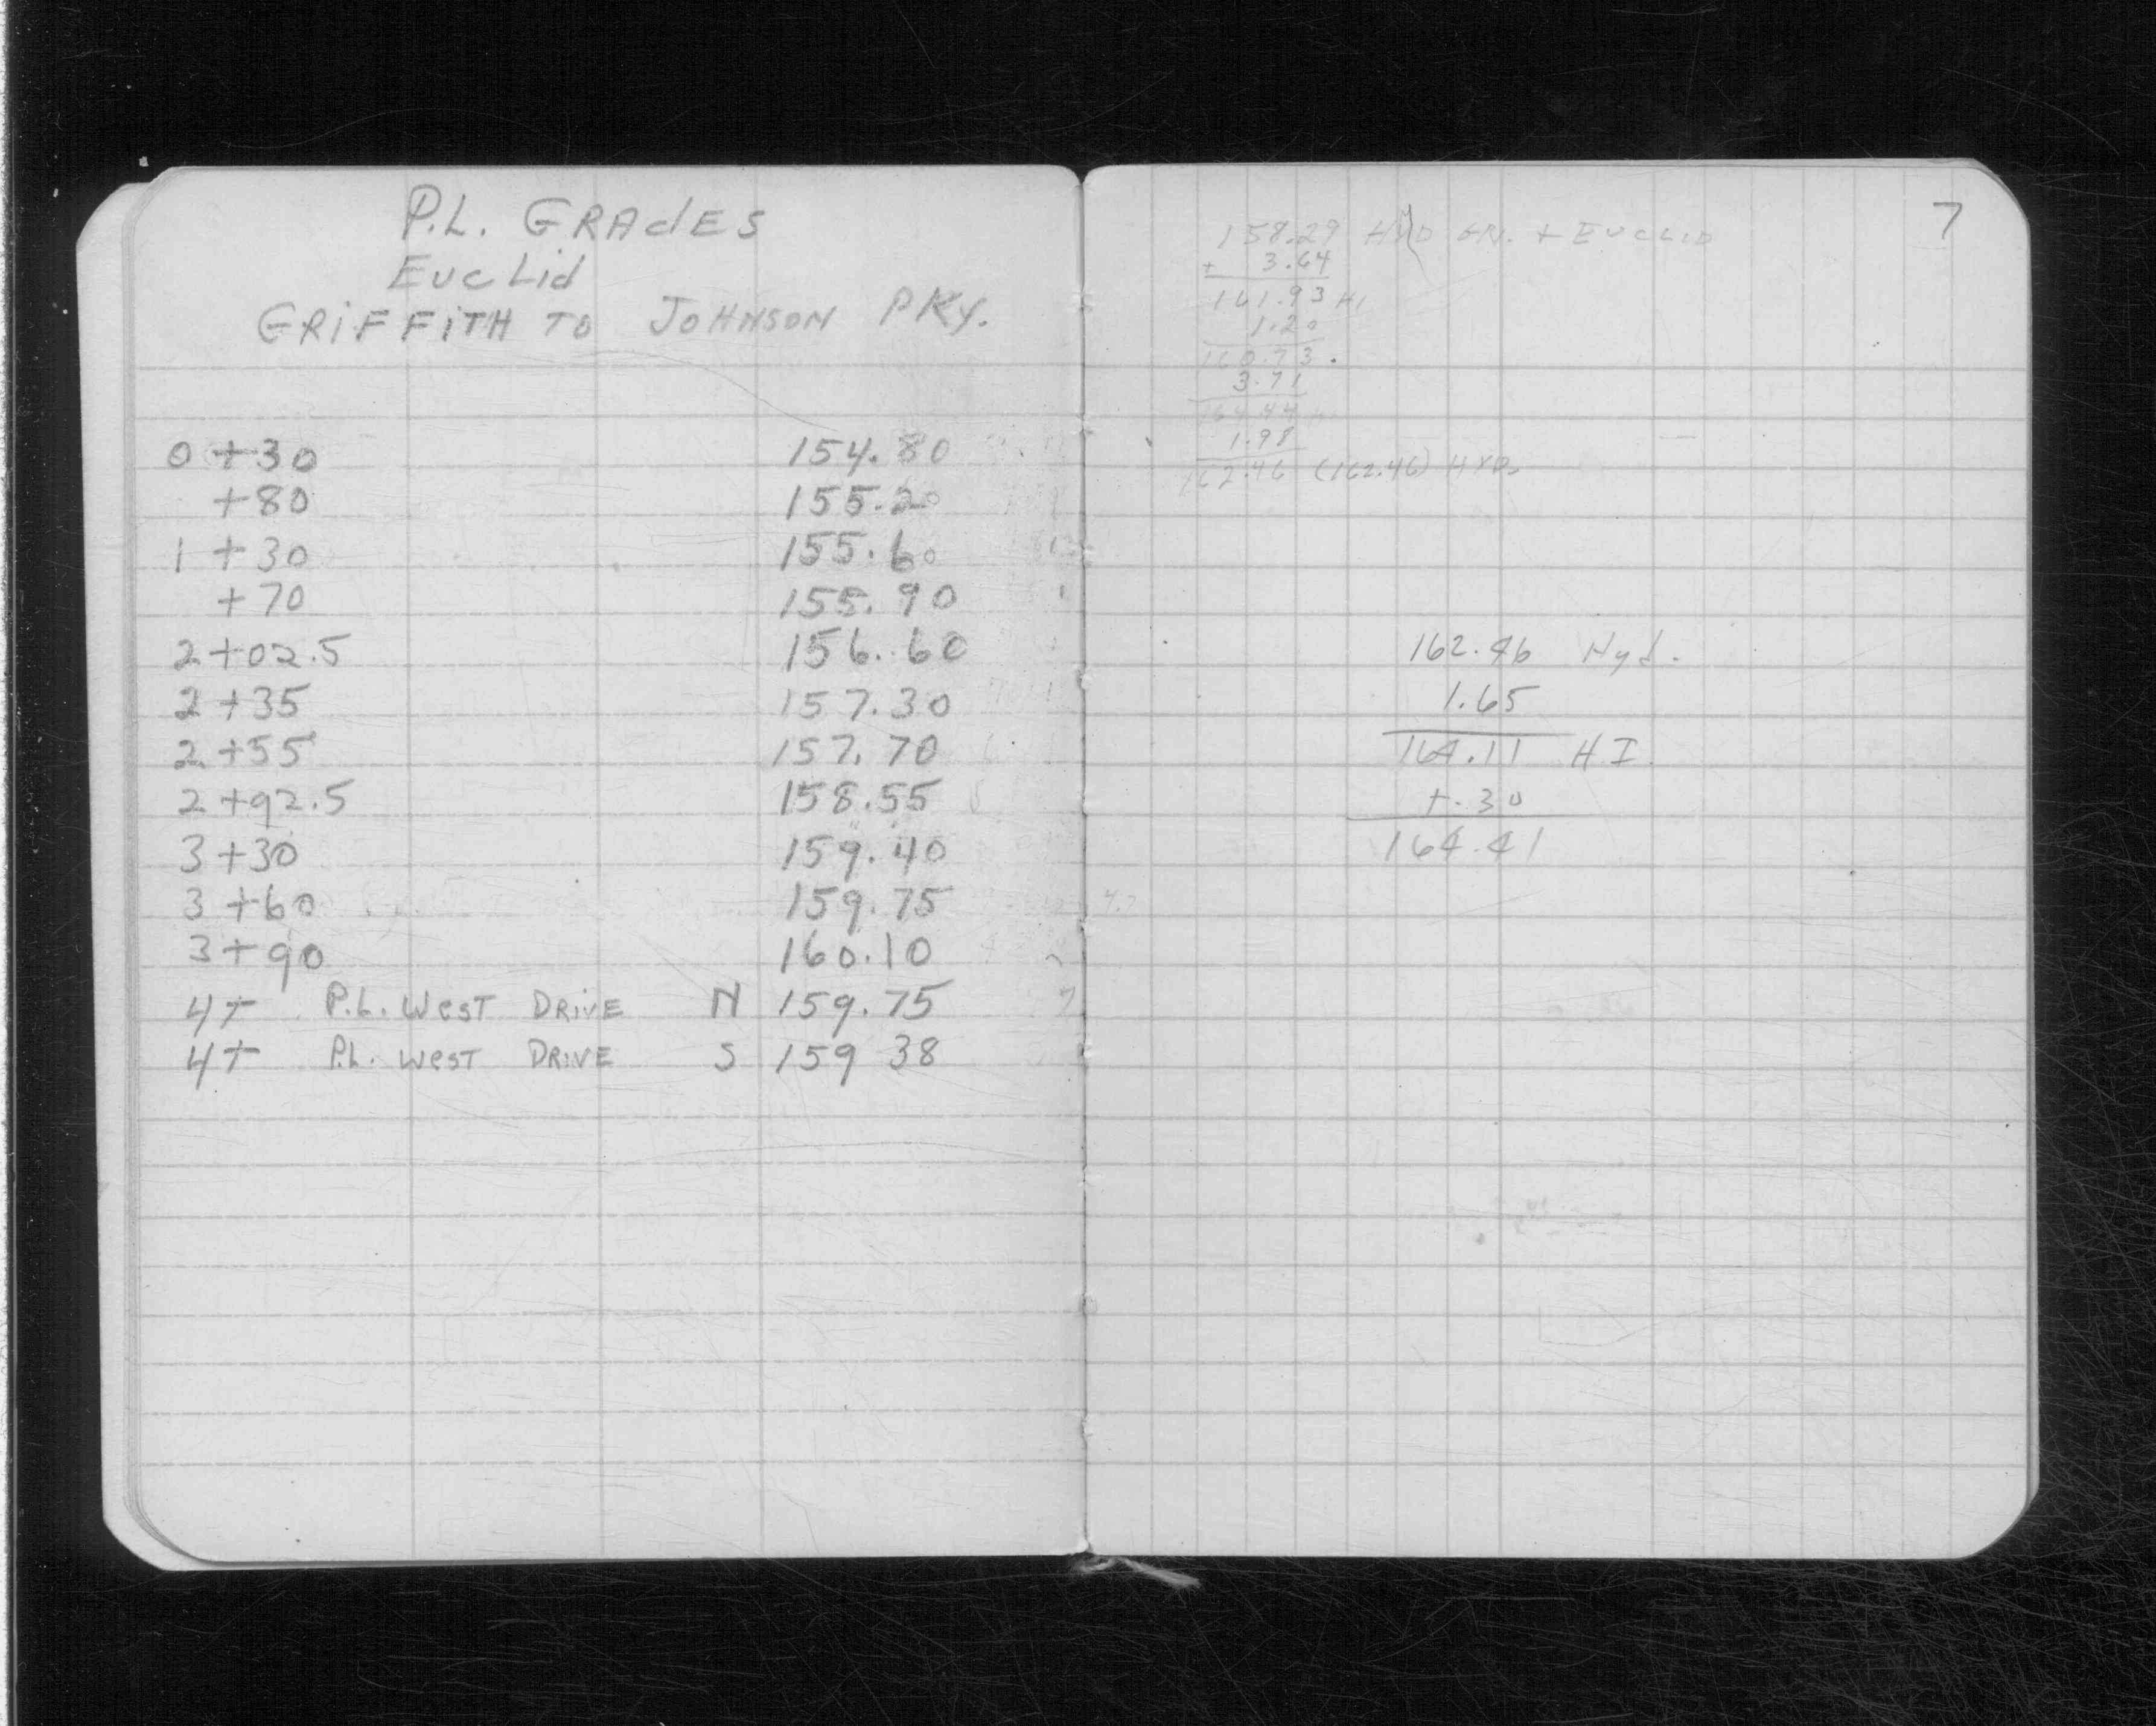 P.L. GRAdES
EucLid
GRiFFiTH TO JOHNSON PKy.
0+30 154.80
+80 155.20
1+30 155.60
+70 155.90
2+02.5 156.60
2+35 157.30
2+55 157.70
2+92.5 158.55
3+30 159.40
3+60 159.75
3+90 160.10
4+ P.L. WEST DRIVE N 159.75
4+ P.L. WEST DRIVE S 159 38
7
158.29 HYD GR. + EUCLID
+ 3.64
161.93 HI
1.20
160.73.
3.71
164.44 HI
1.98
162.46 (162.46) HYD.
162.46 Hyd.
1.65
164.11 HI
+.30
164.41